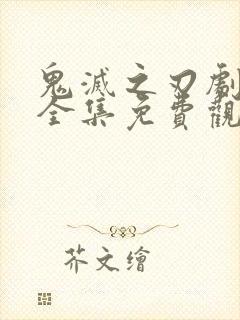 鬼滅之刃劇
全集免費觀
芥文繪